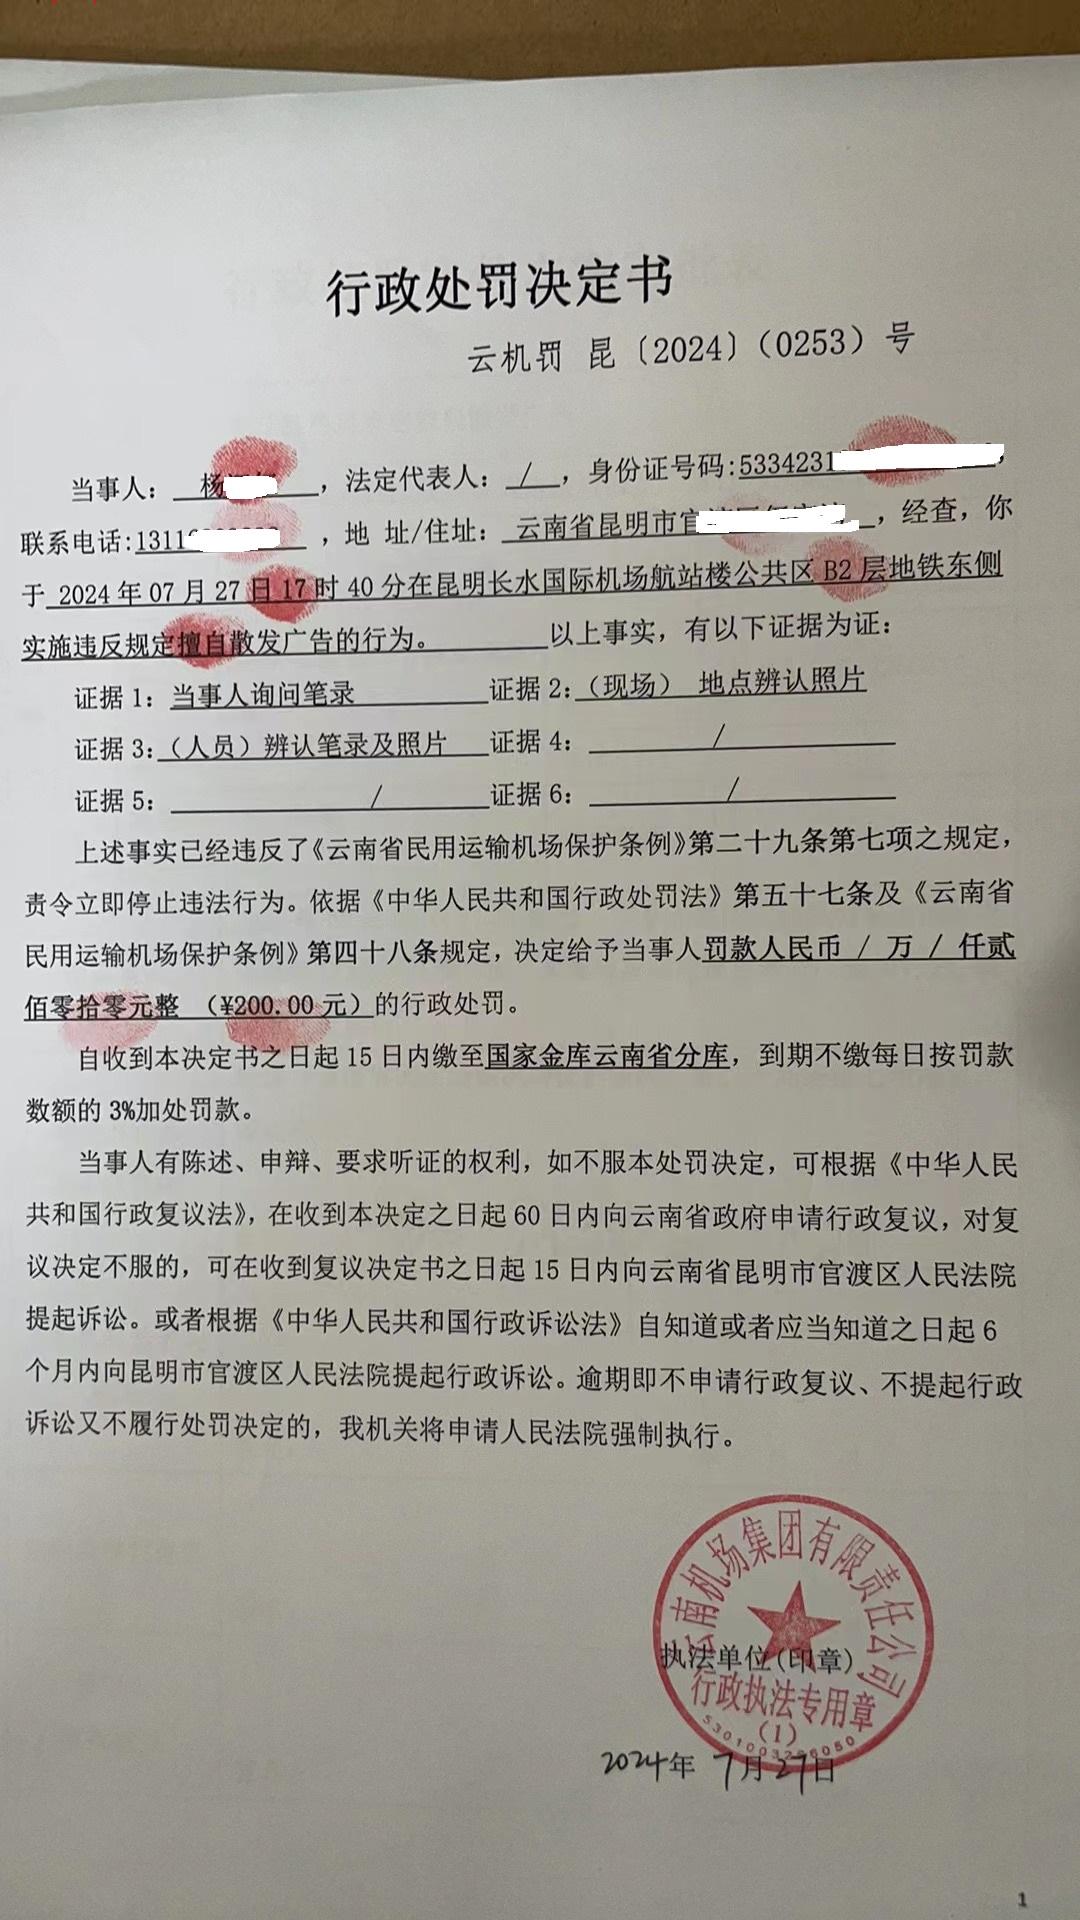 行政处罚决定书
云机罚 昆〔2024〕（0253）号
当事人： 杨 ，法定代表人： / ，身份证号码:5334231 ，
联系电话:1311 ，地 址/住址： 云南省昆明市官 ，经查，你
于 2024 年 07 月 27 日 17 时 40 分在昆明长水国际机场航站楼公共区 B2 层地铁东侧
实施违反规定擅自散发广告的行为。 以上事实，有以下证据为证：
证据 1: 当事人询问笔录 证据 2: （现场） 地点辨认照片
证据 3: （人员）辨认笔录及照片 证据 4: /
证据 5: / 证据 6: /
上述事实已经违反了《云南省民用运输机场保护条例》第二十九条第七项之规定，
责令立即停止违法行为。依据《中华人民共和国行政处罚法》第五十七条及《云南省
民用运输机场保护条例》第四十八条规定，决定给予当事人罚款人民币 / 万 / 仟贰
佰零拾零元整 （¥200.00 元）的行政处罚。
自收到本决定书之日起 15 日内缴至国家金库云南省分库，到期不缴每日按罚款
数额的 3%加处罚款。
当事人有陈述、申辩、要求听证的权利，如不服本处罚决定，可根据《中华人民
共和国行政复议法》，在收到本决定之日起 60 日内向云南省政府申请行政复议，对复
议决定不服的，可在收到复议决定书之日起 15 日内向云南省昆明市官渡区人民法院
提起诉讼。或者根据《中华人民共和国行政诉讼法》自知道或者应当知道之日起 6
个月内向昆明市官渡区人民法院提起行政诉讼。逾期即不申请行政复议、不提起行政
诉讼又不履行处罚决定的，我机关将申请人民法院强制执行。
云南机场集团有限责任公司
执法单位(印章)
行政执法专用章
(1)
2024年 7月27日
1